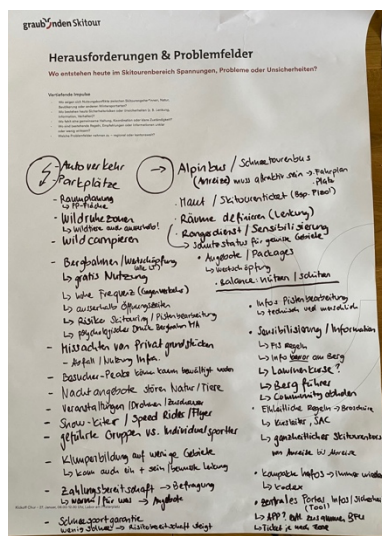 graubünden Skitour
Herausforderungen & Problemfelder
Wo entstehen heute im Skitourenbereich Spannungen, Probleme oder Unsicherheiten?
Vertiefende Impulse
- Autoverkehr
- Parkplätze
- Raumplanung
↳ PP-Fläche
- Wildruhezonen
↳ Wildtiere auch ausserhalb!
- Wild campieren
- Bergbahnen / Wertschöpfung
↳ gratis Nutzung
↳ hohe Frequenz (Gegenverkehr)
↳ ausserhalb Öffnungszeiten
↳ Risiko Skitouring / Pistenbearbeitung
↳ psychologischer Druck Bergbahn MA
- Missachten von Privatgrundstücken
- Abfall / Nutzung Infra.
- Besucher-Peaks können bewältigt werden
- Nachtangebote stören Natur / Tiere
- Veranstaltungen / Drohnen / Zuschauer
- Show-Kiter / Speed Rider / Flyer
- geführte Gruppen vs. Individualsportler
- Klumpenbildung auf wenige Gebiete
↳ kann auch ein + sein / bewusste Lenkung
- Zahlungsbereitschaft → Befragung
↳ wann / für was → Angebote
- Schneesportgarantie
wenig Schnee → Risikobereitschaft steigt
→ Alpinbus / Schneetourenbus
(Anreize) muss attraktiv sein → Fahrplan
- Platz
· Maut / Skitourenticket (Bsp. Pizol)
· Räume definieren (Lenkung)
· Rangerdienst / Sensibilisierung
↳ Schutzstatus für gewisse Gebiete
· Angebote / Packages
↳ Wertschöpfung
· Balance: nützen / schützen
· Infos Pistenbearbeitung
↳ technisch und menschlich
· Sensibilisierung / Information
↳ FIS Regeln
↳ Info bevor am Berg
↳ Lawinenkurse?
↳ Bergführer
↳ Community abholen
· Einheitliche Regeln → Broschüre
↳ Kursleiter, SAC
↳ ganzheitlicher Skitourenbus
von Anreise bis Abreise
· kompakte Infos → immer wieder
↳ Kodex
· zentrales Portal Infos / Sicherheit
(Tool)
↳ APP?
↳ Ticket je nach Zone